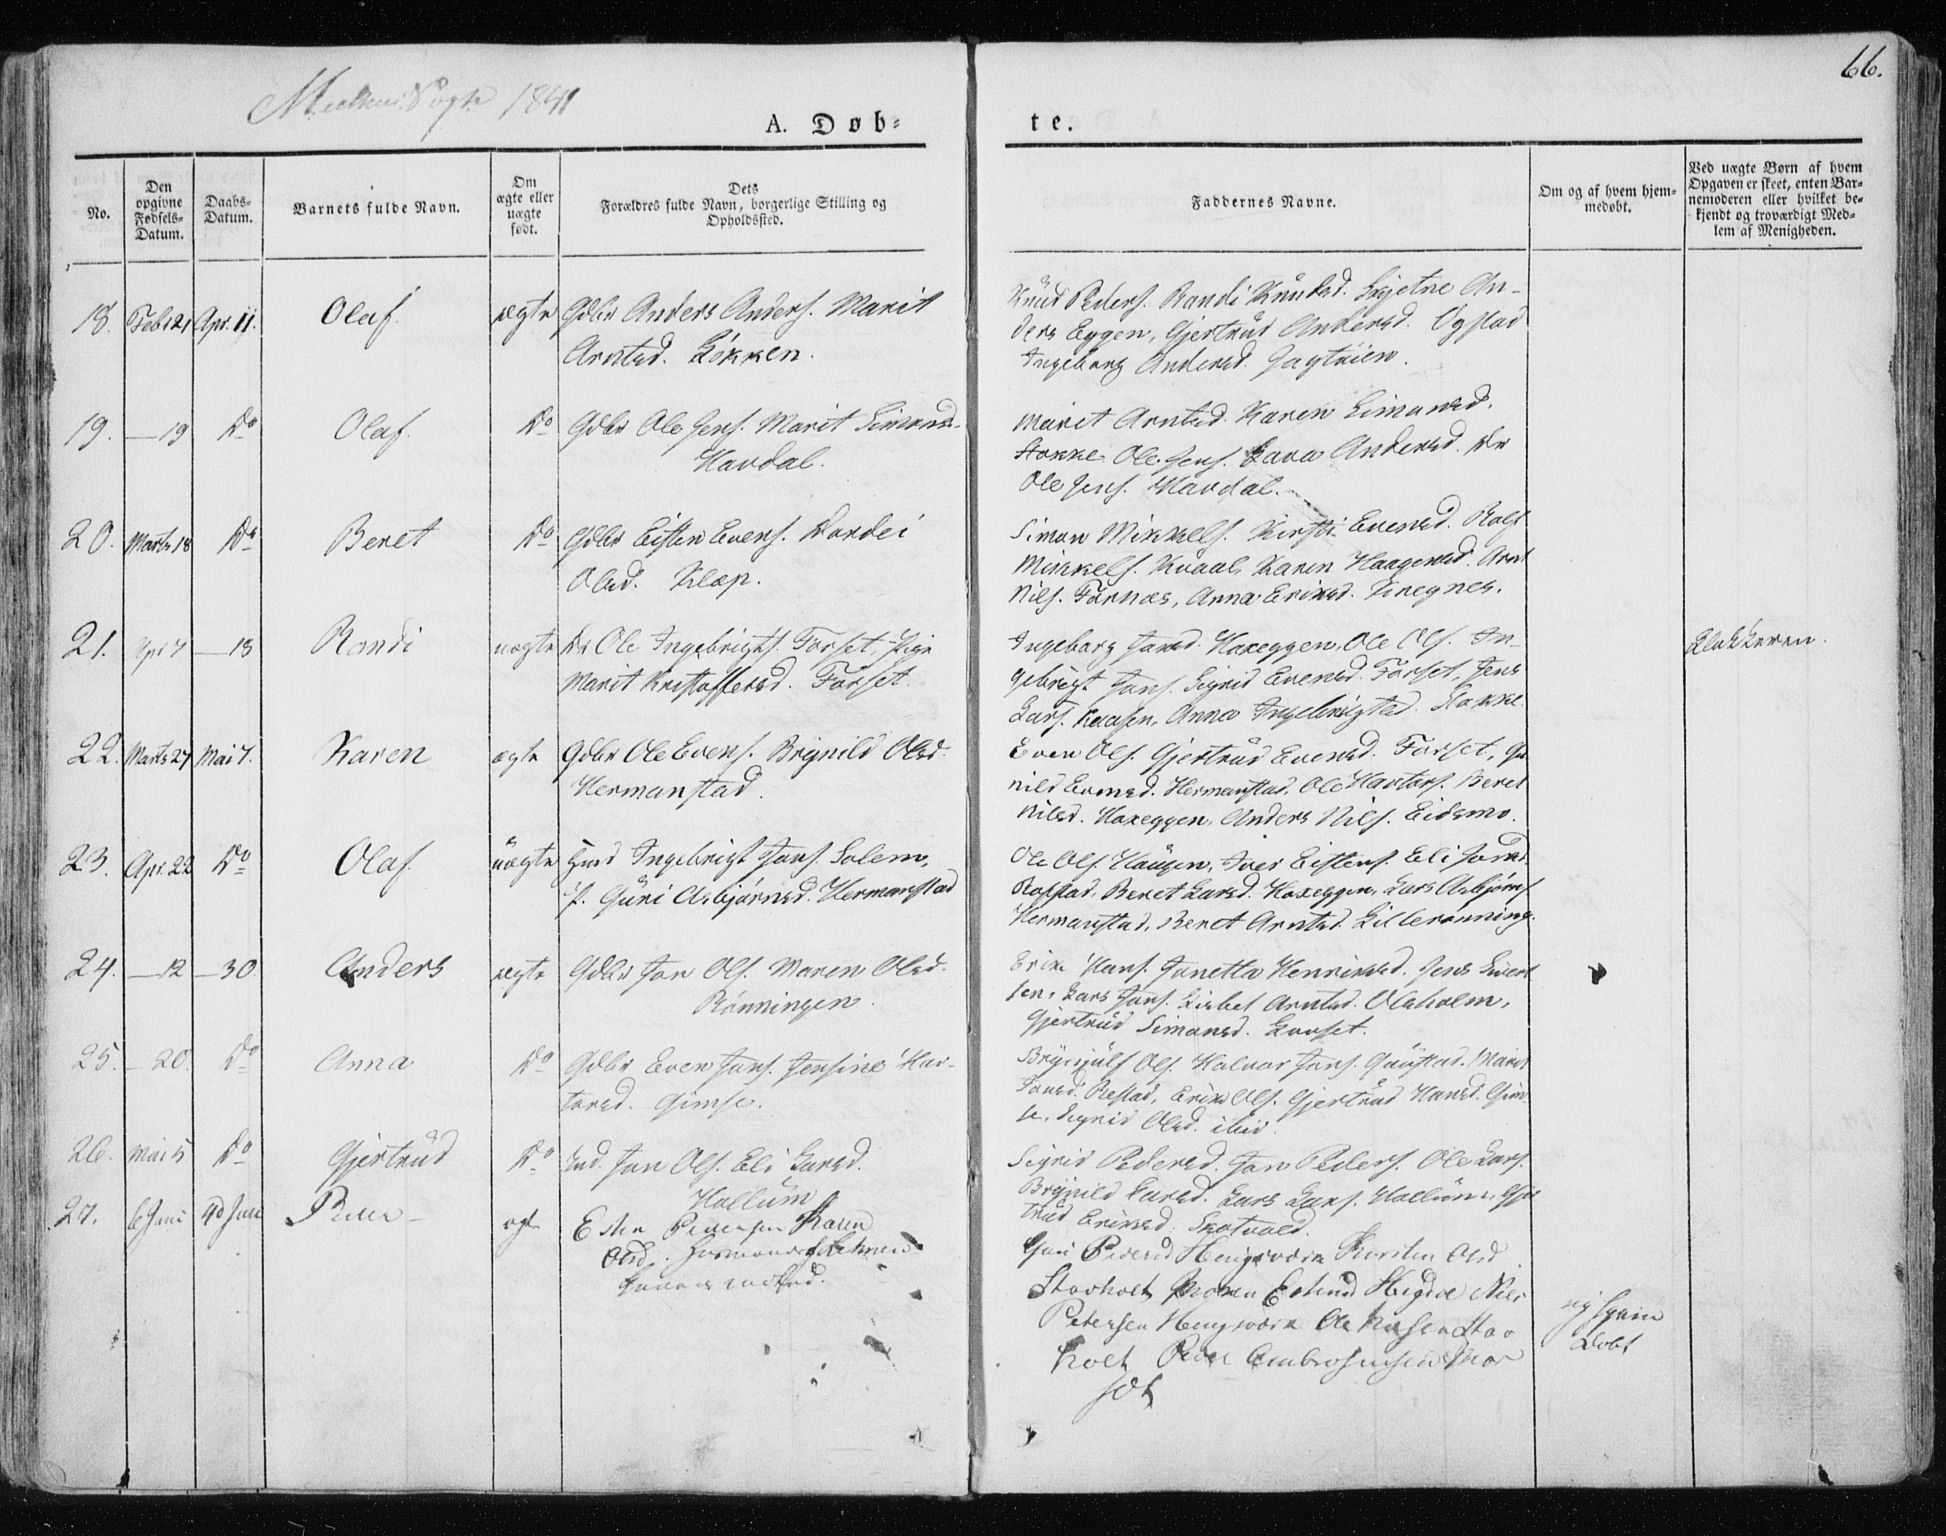 66.
Sogn 1841
A. Døb=
te.
No.
Den opgivne Fødsels-Datum.
Daabs-Datum.
Barnets fulde Navn.
Om ægte eller uægte født.
Dets Forældres fulde Navn, borgerlige Stilling og Opholdssted.
Faddernes Navne.
Om og af hvem hjemmedøbt.
Ved uægte Børn af hvem Opgaven er skeet, enten Barnemoderen eller hvilket bekjendt og troværdigt Medlem af Menigheden.
18. Febr 21 Apr. 11. Olaf. ægte Gdbr Anders Anders. Marit
Arntsd. Løkken.
Knud Peders. Randi Knudsd. Skjetne An-
ders Eggen, Gjertrud Andersd. Ogstad
Ingeborg Andersd.
19. — 19 Do Olaf. Do Gdbr Ole Jens. Marit Simons-
Havdal.
Marit Arntsd. Karen Simonsd.
Stokke Ole Jens. Andersd.
Ole Jens. Havdal.
20. Marts 18 Do Beret Do Gdbr Eisten Evens. Dordei
Olsd. Kløp.
Simon Mikkels. Kirsti Evensd. Rolf
Mikkels. Kvaal, Karen Haagensd. Arnt
Nils. Førnæs, Anna Eriksd. Kregnes.
21. Apr 7 — 13 Randi uægte Ole Ingebrigts. Forset, Pige
Marit Kristoffersd. Forset.
Ingeborg Jonsd. Hoxeggen, Ole Ols. In-
gebrigt Jons. Sigrid Evensd. Forset, Jens
Lars. Anna Ingebrigtsd. Stokke
Klokkeren.
22. Marts 27 Mai 7. Karen ægte Gdbr Ole Evens. Brynild Olsd.
Hermanstad.
Even Ols. Gjertrud Evensd. Forset, Gu
nild Evensd. Hermanstad, Ole Hartors. Beret
Nilsd. Hoxeggen, Anders Nils. Eidsmo.
23. Apr. 22 Do Olaf. uægte Ingebrigt Jons. Solem,
P. Guri Asbjørnsd. Hermanstad
Ole Ols. Haugen, Iver Eistens. Eli Jonsd.
Rofstad, Beret Larsd. Hoxeggen, Lars Asbjørns.
Hermanstad, Beret Arntsd. Lillerønning.
24. — 12 — 30. Anders ægte Gdbr Jon Ols. Maren Olsd.
Rønningen.
Erik Hans. Janetta Henriksd. Jens Sivert
sen, Lars Jons. Lisbet Arntsd. Olsholm,
Gjertrud Simonsd.
25. — 20. Do Anna Do Gdbr Even Jons. Jensine Har-
torsd. Gimse.
Brynjulf Ols. Halvor Jons. Marit
Jonsd. Erik Ols. Gjertrud Hansd. Gim
se, Sigrid Olsd. ibid.
26. Mai 5 Do Gjertrud Do Ind. Jon Ols. Eli Larsd.
Hollum
Sigrid Pedersd. Jon Peders. Ole Lars.
Brynild Larsd. Lars Lars. Hollum, Gjer
trud Eriksd. Skotvold.
27. 6 Juni Juli Peder ægte Pedersen Karen
Olsd.
Guri Pedersd Karsten Olsd
Nils
Petersen Ole Nilsen Stav
holt Peder Ambrosiusen
set
døbt